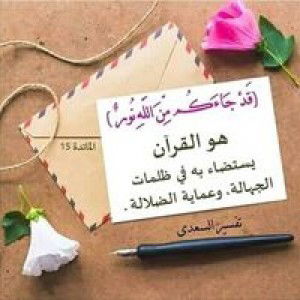 ﴿قَدْ جَاءَكُم مِّنَ اللَّهِ نُورٌ﴾
المائدة 15
هو القرآن
يستضاء به في ظلمات
الجهالة، وعماية الضلالة.
تفسير السعدي